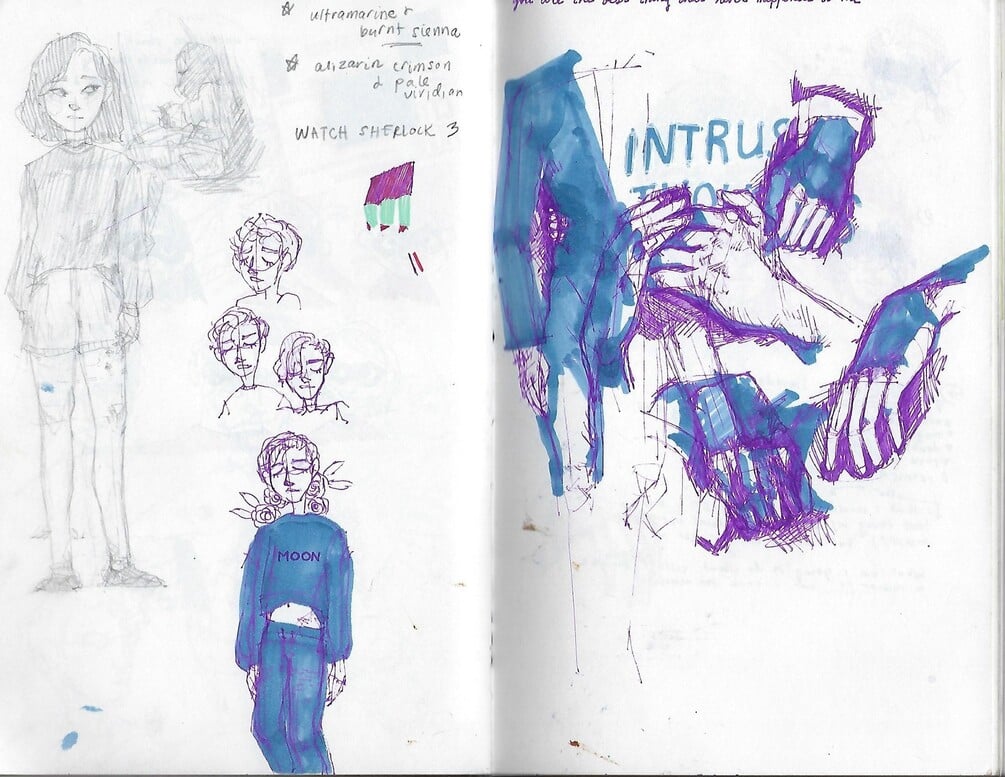 ☆ ultramarine &
burnt sienna
☆ alizarin crimson
& pale
viridian
WATCH SHERLOCK 3
MOON
you are the best thing that never happened to me
INTRUS
THOU